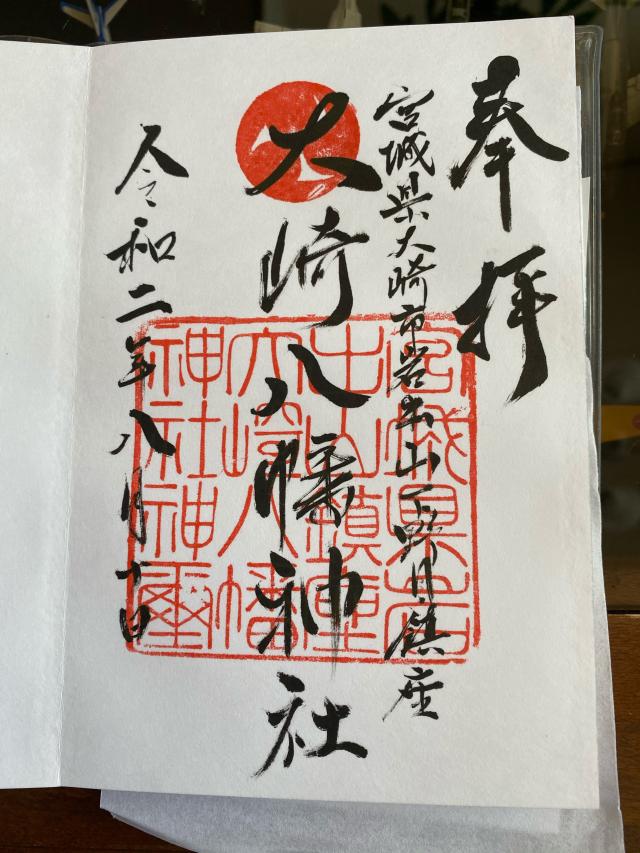 奉拝
宮城県大崎市岩出山下野目鎮座
大崎八幡神社
令和二年八月十日
宮城県岩
出山鎮座
大崎八幡
神社神璽